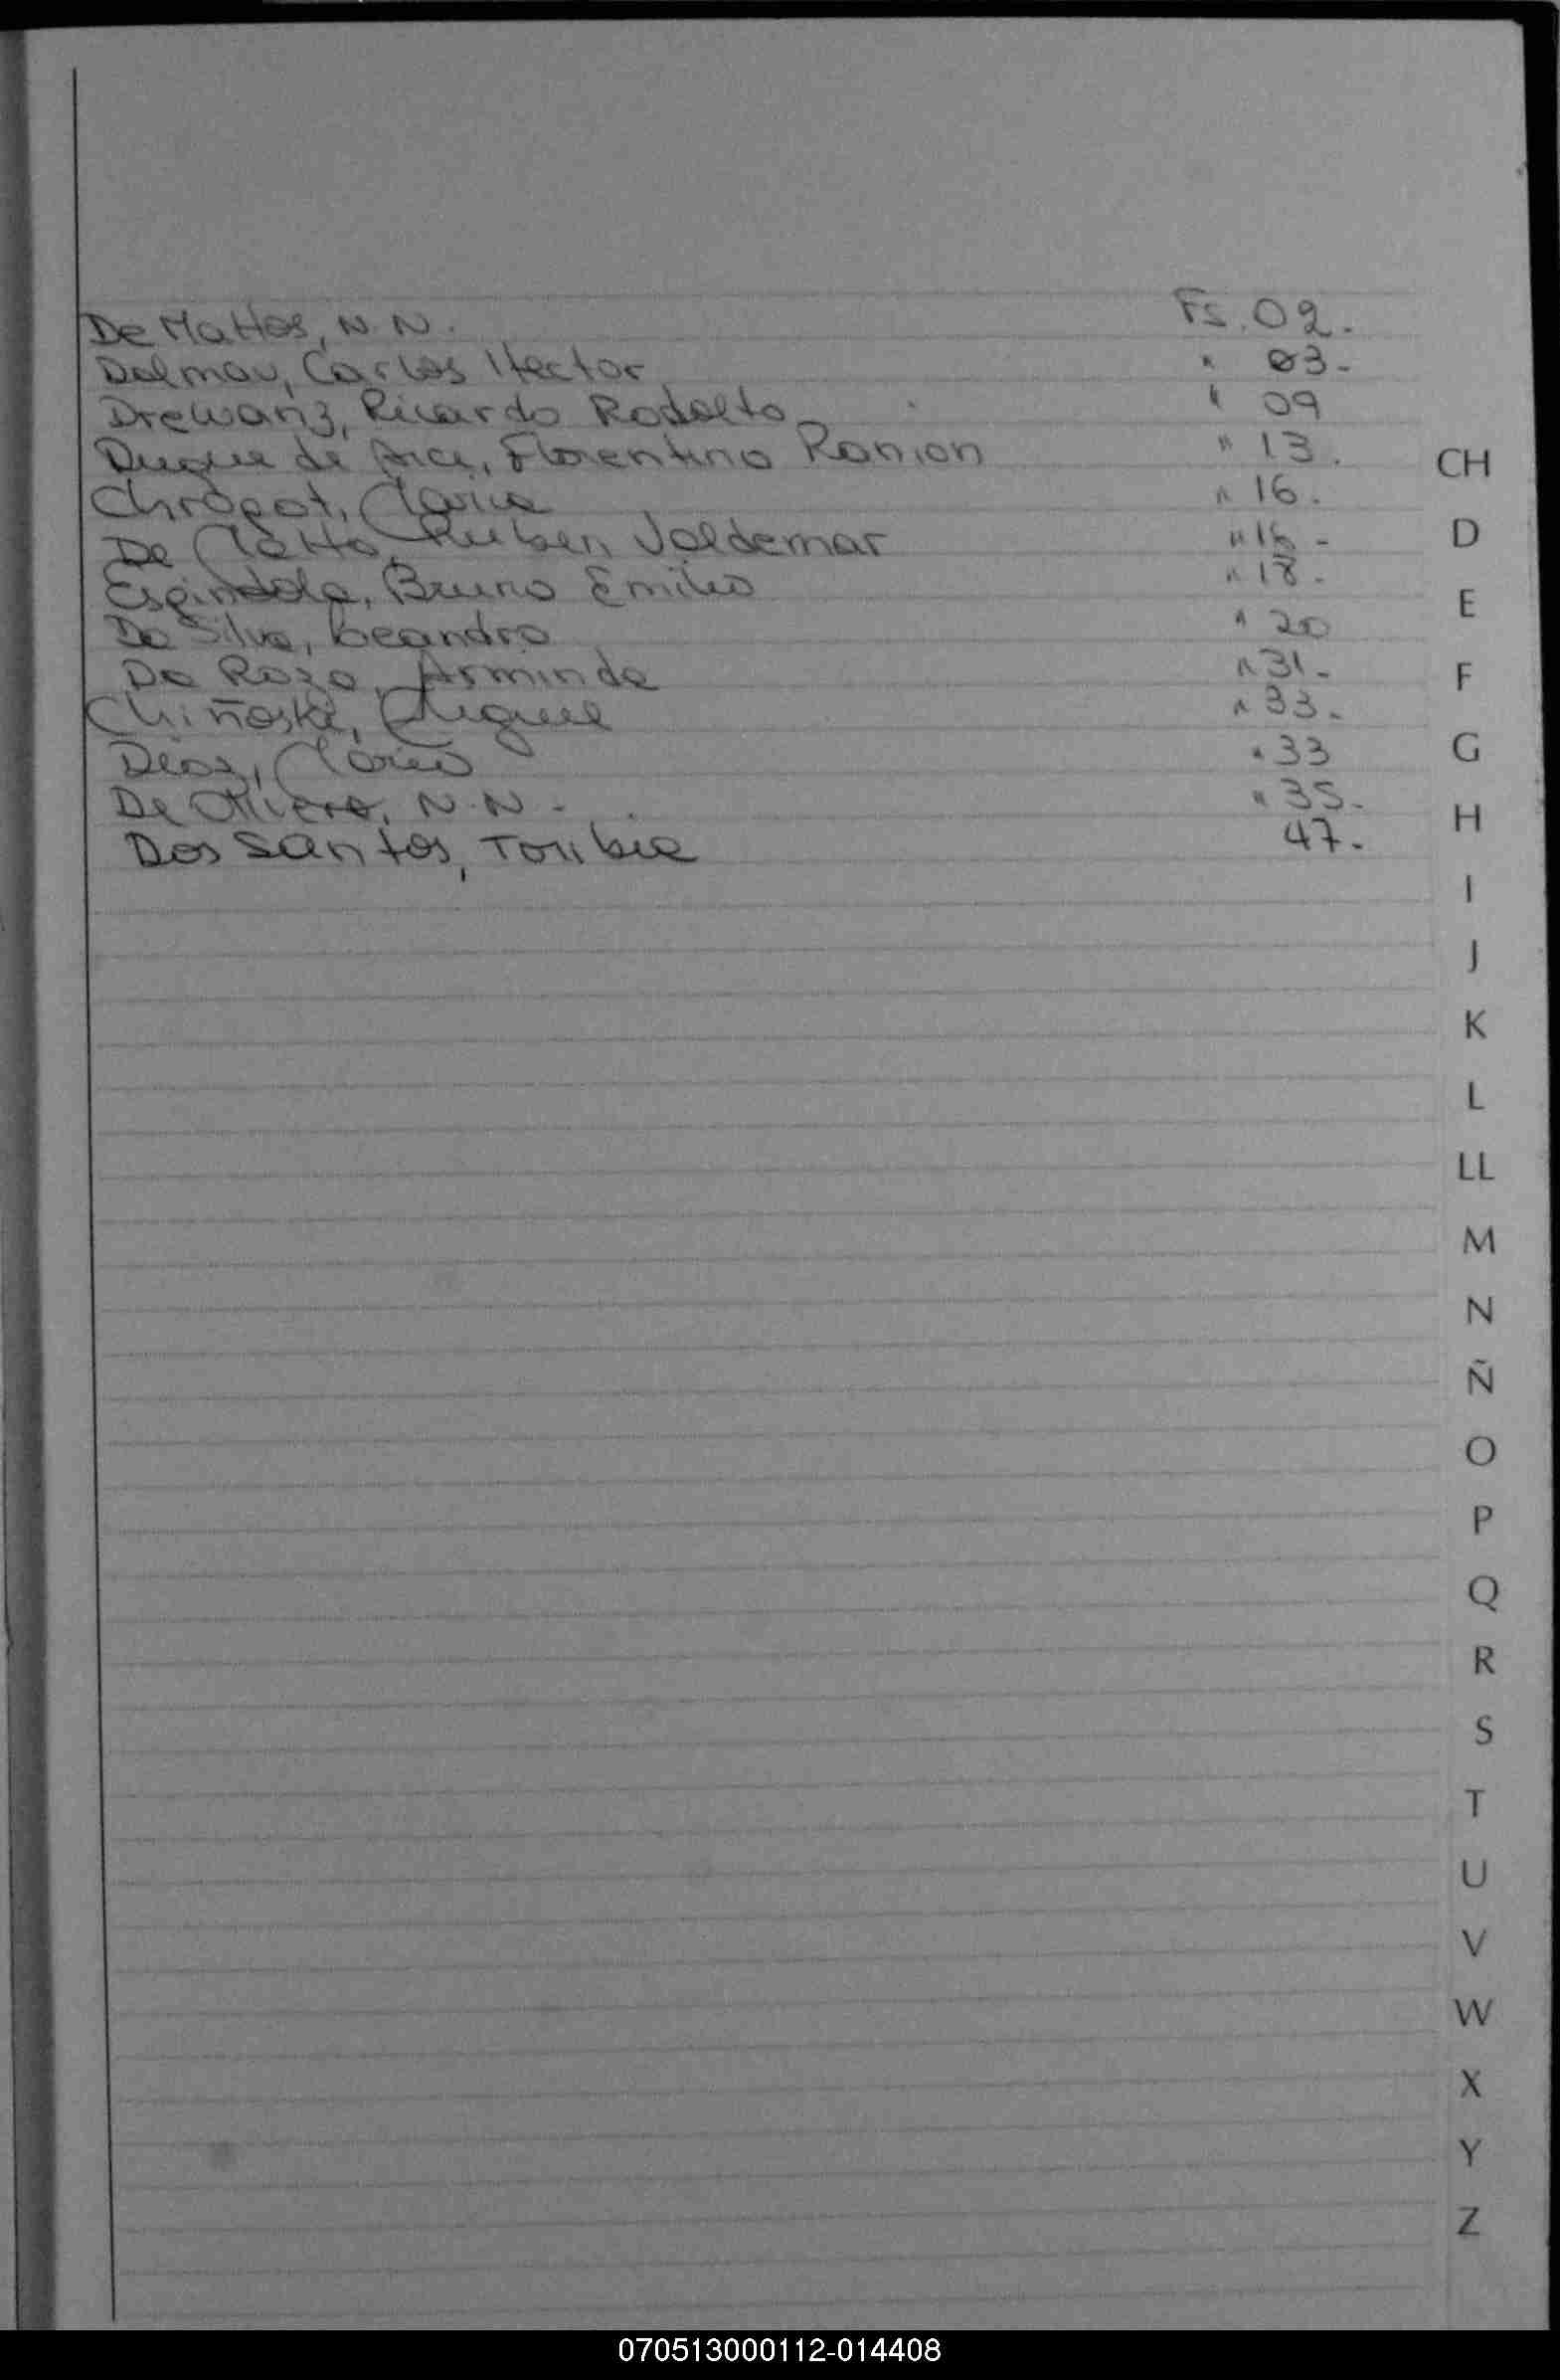 De Mattos, N.N. Fs. 02.
Dalmau, Carlos Hector " 03-
Drewanz, Ricardo Rodolfo " 09
Duque de Arce, Florentino Ramon " 13.
Chropot, Maria " 16.
De Matto, Ruben Valdemar " 16 -
Espindola, Bruno Emilio " 18.
Da Silva, Leandro " 20
Da Roza, Arminda " 31.
Chiñoski, Miguel " 33.
Diaz, Mario " 33
De Olivera, N.N - " 35.
Dos Santos, Toribia 47.
CH
D
E
F
G
H
I
J
K
L
LL
M
N
Ñ
O
P
Q
R
S
T
U
V
W
X
Y
Z
070513000112-014408